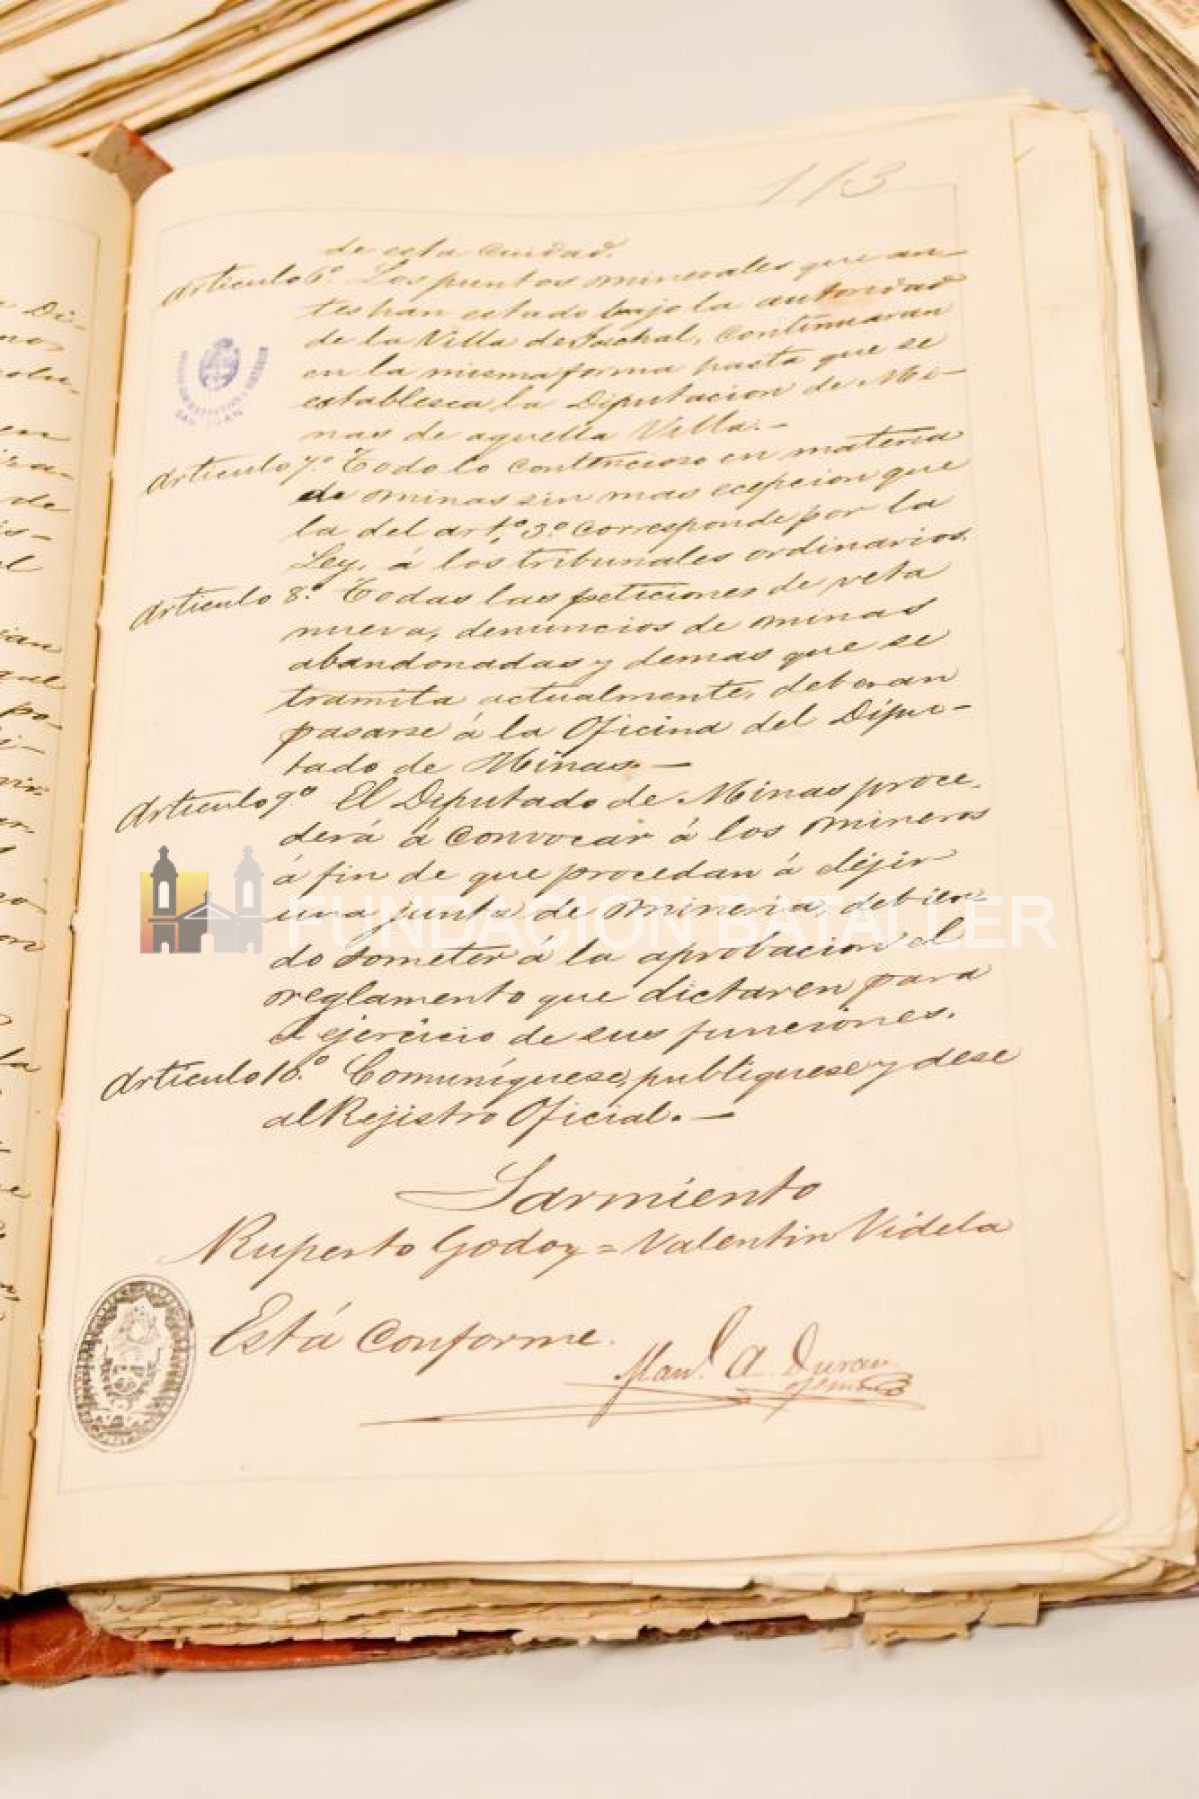 113
de esta Ciudad.
Artículo 6º. Los puntos minerales que an-
tes han estado bajo la autoridad
de la Villa de Jachal, continuaran
en la misma forma hasta que se
establesca la Diputacion de Mi-
nas de aquella Villa.-
Artículo 7º. Todo lo contencioso en materia
de minas sin mas ecepcion que
la del artº. 3º. corresponde por la
Ley, á los tribunales ordinarios.
Artículo 8º. Todas las peticiones de veta
nueva, denuncios de minas
abandonadas y demas que se
tramita actualmente, deberan
pasarse á la Oficina del Dipu-
tado de Minas.-
Artículo 9º El Diputado de Minas proce-
derá á convocar á los mineros
á fin de que procedan á elejir
una junta de mineria, debien-
do someter a la aprobacion el
reglamento que dictaren para
el ejercicio de sus funciones.
Artículo 10º. Comuníquese, publíquese y dese
al Rejistro Oficial.-
Sarmiento
Ruperto Godoy = Valentin Videla
Está Conforme.
Manl. A. Duran
SAN JUAN
FUNDACION BATALLER